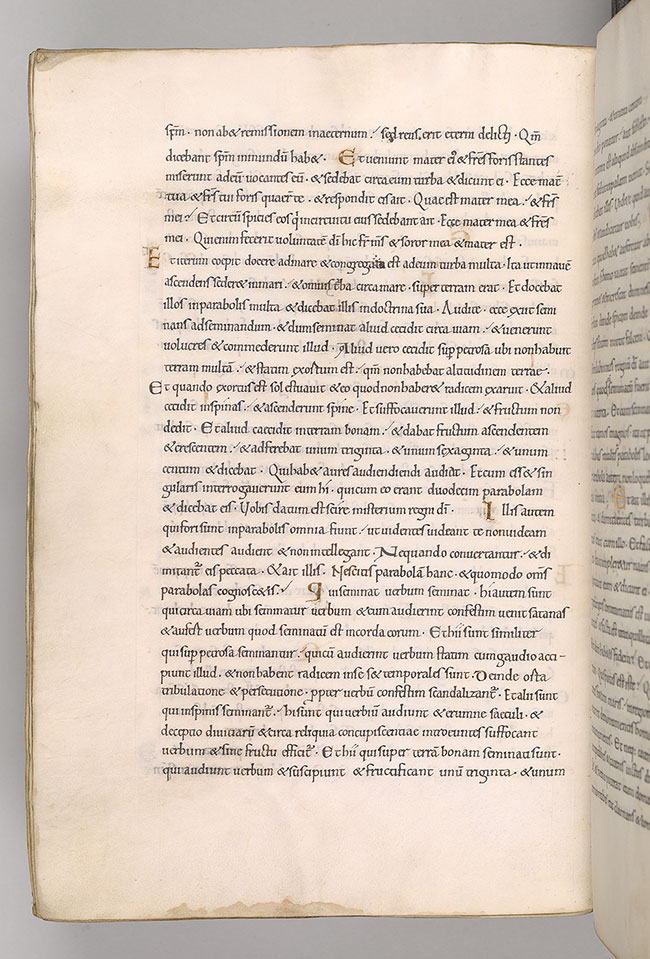 spm · non habet remissionem inaeternum · sed reus erit eterni delicti · Qm
dicebant spm inmundū habet · Et veniunt mater ei' & frs foris stantes
miserunt adeū vocantes eū · & sedebat circa eum turba & dicunt ei · Ecce mat̄
tua & frs tui foris quaer te · & respondit eis ait · Quae est mater mea · & frs
mei · Et circūspiciens eos q̇ in circuitu eius sedebant ait · Ecce mater mea & frs
mei · Qui enim fecerit voluntatē dī hic fr ms & soror mea & mater est ·
Et iterum coepit docere ad mare & congregata est ad eum turba multa · Ita ut in navē
ascendens sederet in mari · & omnis t̄ba circa mare · super terram erat · Et docebat
illos in parabolis multa & dicebat illis in doctrina sua · Audite · ecce exiit semi
nans ad seminandum · & dum seminat aliud cecidit circa viam · & venerunt
volucres & commederunt illud · Aliud vero cecidit sup petrosa ubi non habuit
terram multā · & statim exortum est · qm̄ non habebat altitudinem terrae ·
Et quando exortus est sol estuavit · & eo quod non haberet radicem exaruit · & aliud
cecidit in spinas · & ascenderunt spine · Et suffocaverunt illud · & fructum non
dedit · Et aliud caecidit in terram bonam · & dabat fructum ascendentem
& crescentem · & adferebat unum triginta · & unum sexaginta · & unum
centum & dicebat · Qui habet aures audiendi audiat · Et cum esset sin
gularis interrogaverunt eum hi · qui cum eo erant duodecim parabolam
& dicebat eis · Vobis datum est scire misterium regni dī · Illis autem
qui foris sunt in parabolis omnia fiunt · ut videntes videant et non videam
& audientes audient & non intellegant · Ne quando convertantur · & di
mittant̄ eis peccata · & ait illis · Nescitis parabolā hanc · & quomodo oms
parabolas cognoscetis · Qui seminat verbum seminat · hi autem sunt
qui circa viam ubi seminatur verbum & cum audierint confestim venit satanas
& aufert verbum quod seminatū est in corda eorum · Et hii sunt similiter
qui sup petrosa seminantur · qui cū audierint verbum statim cum gaudio acci-
piunt illud · & non habent radicem in se & temporales sunt · Deinde orta
tribulatione & persecutione · ppter verbū confestim scandalizant̄ · Et alii sunt
qui in spinis seminant̄ · hi sunt qui verbiū audiunt & erumne saeculi · &
deceptio divitiarū & circa reliqua concupiscentiae introeuntes suffocant
verbum & sine fructu efficit̄ · Et hii qui super terrā bonam seminati sunt ·
qui audiunt verbum & suscipiunt & fructificant unū triginta · & unum